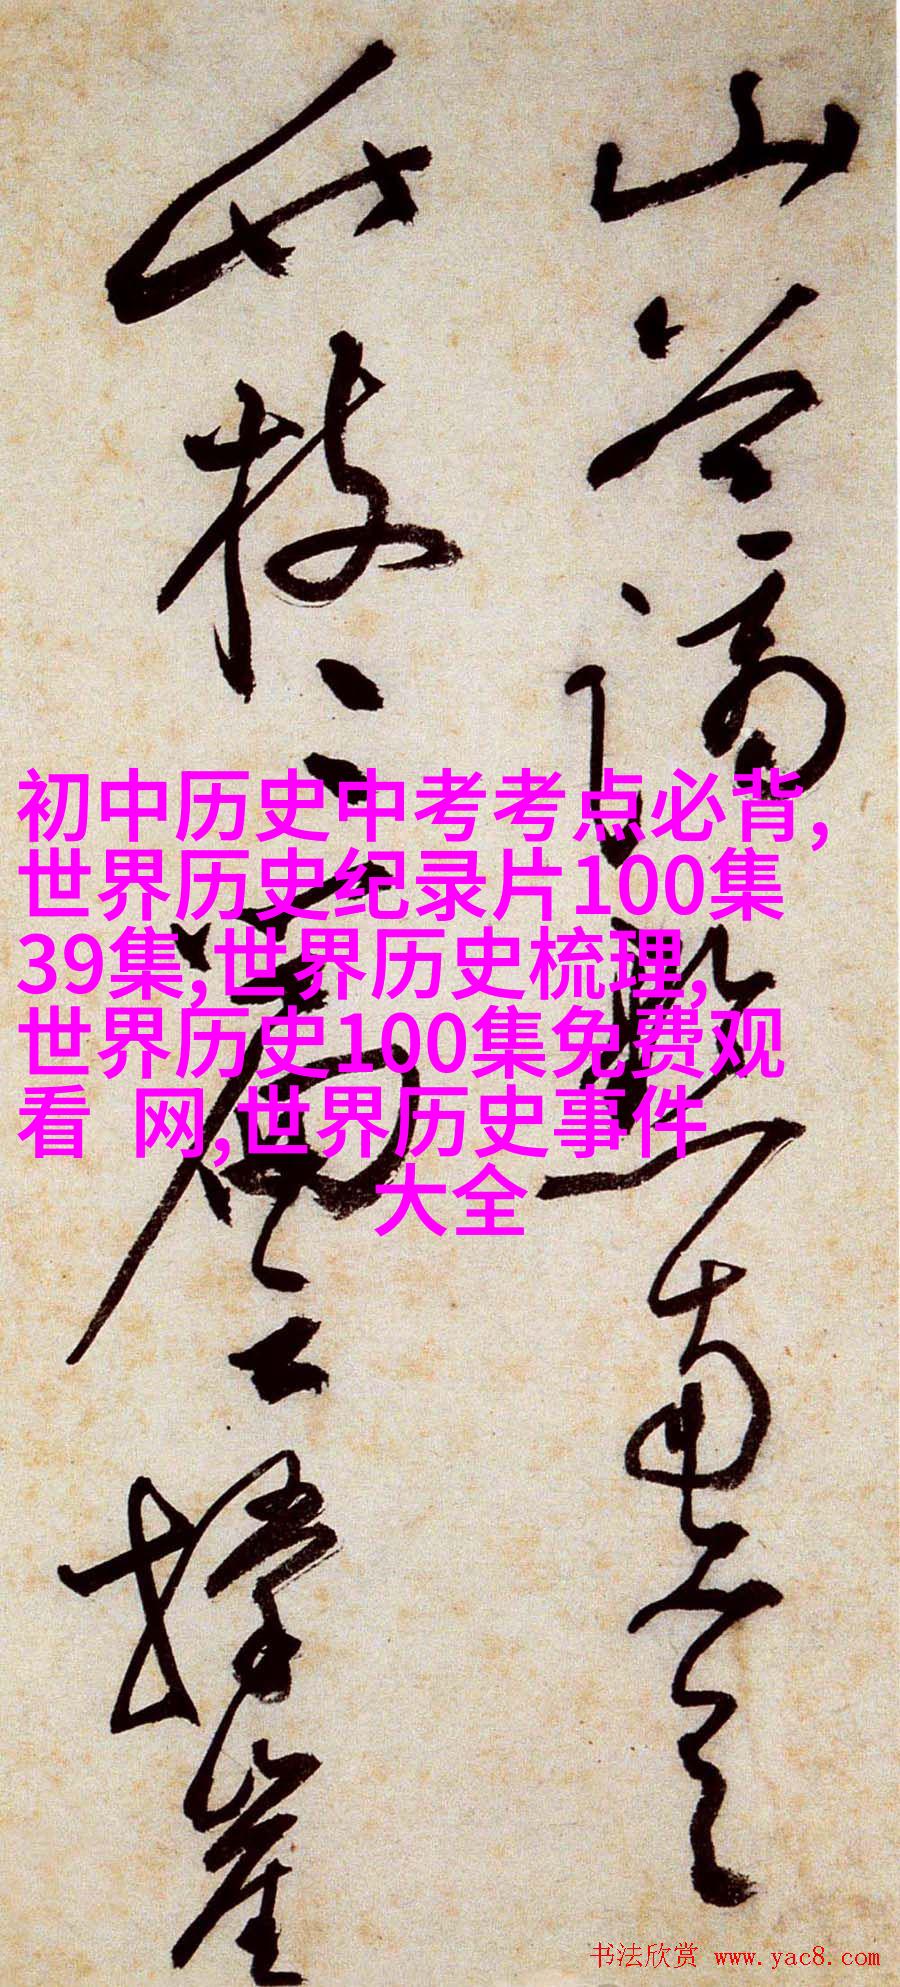 山谷謫黔南言
此披之舊之擇崔
初中历史中考考点必背,
世界历史纪录片100集
39集,世界历史梳理,
世界历史100集免费观
看 网,世界历史事件
大全
书法欣赏 www.yac8.com